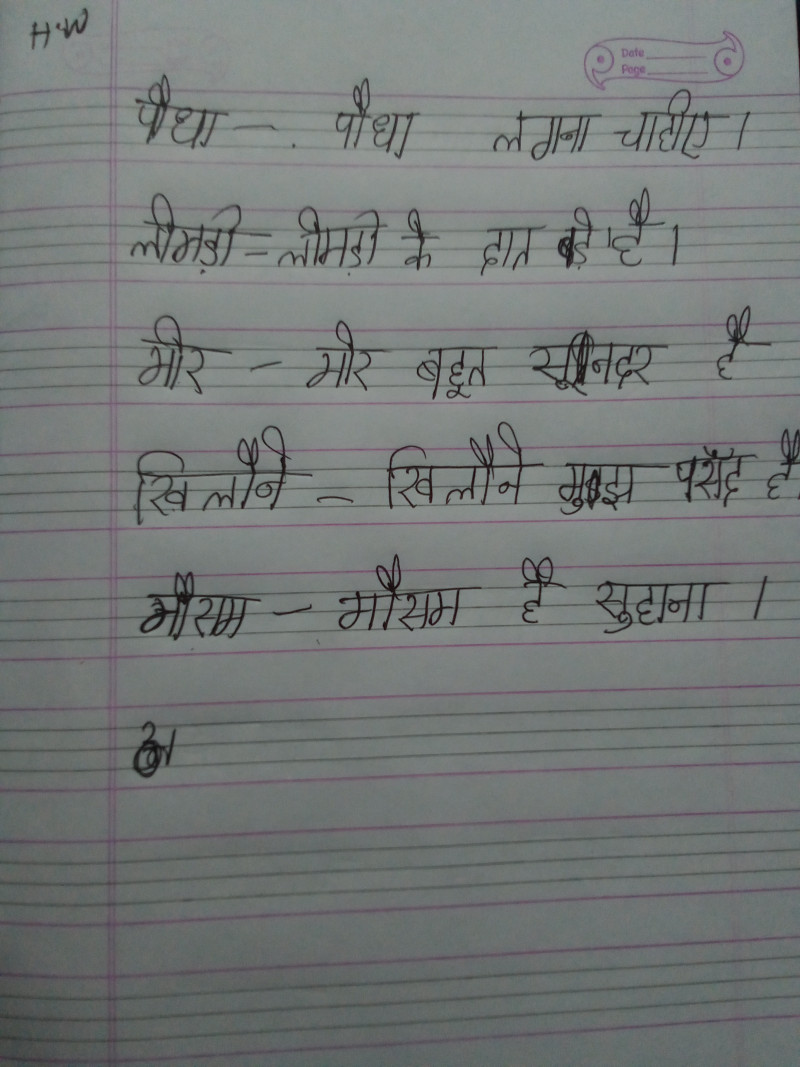 H.W
Date
Page
पौधा - . पौधा लगना चाहीए ।
लोमड़ी - लोमड़ी के दात बड़े है ।
मोर - मोर बहूत सूनदर है
खिलौने - खिलौने मुझ पसँद है।
मौसम - मौसम है सुहाना ।